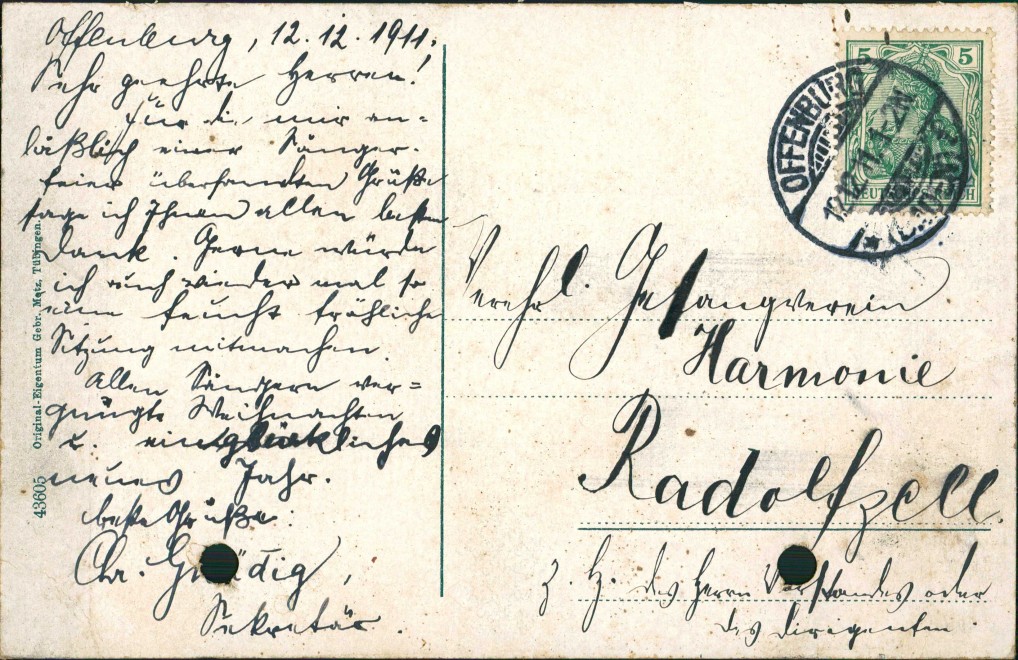 Offenburg, 12.12.1911.
Sehr geehrte Herren!
Für die mir an=
läßlich einer Sänger-
feier übersandten Grüße
sage ich Ihnen allen besten
Dank. Gerne würde
ich auch wieder mal so
eine feucht fröhliche
Sitzung mitmachen.
Allen Sängern ver=
gnügte Weihnachten
u. ein glückliches
neues Jahr.
beste Grüße.
Chr.
Sekretär.
43605 Original-Eigentum Gebr. Metz, Tübingen.
5 5
DEUTSCHES REICH
OFFENBURG
12.12.11.1-2N
(BADEN)
Verehrl. Gesangverein
Harmonie
Radolfzell.
z. H. des Herrn Vorstandes oder
des Dirigenten